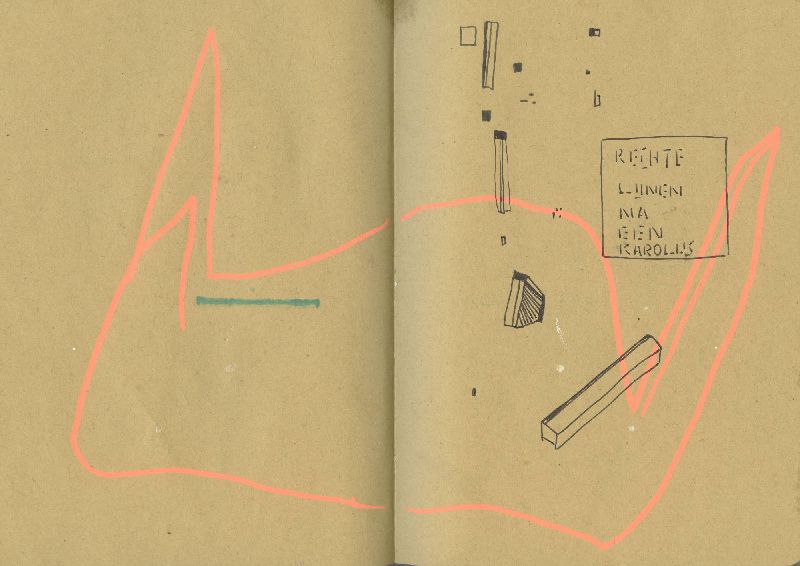 RECHTE
LIJNEN
NA
EEN
KAROLUS